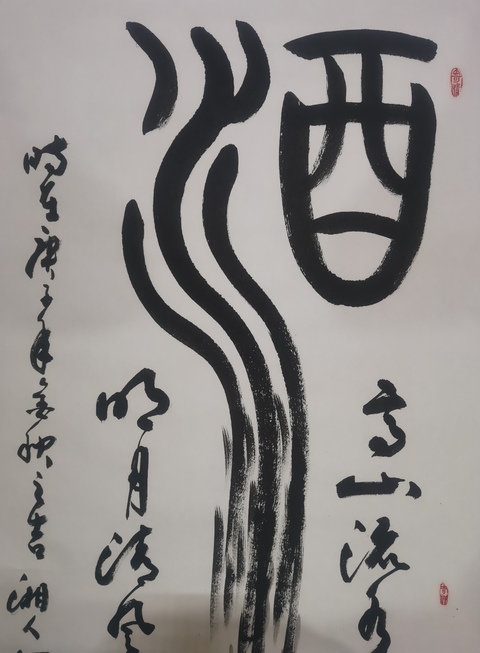 酒
高山流水
明月清风
时在庚子年金秋之吉湘人